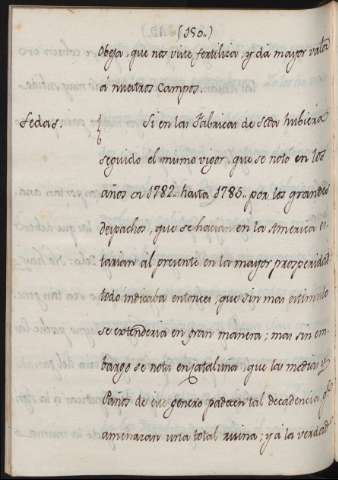 (150.)
Obeja, que nos viste, fertiliza, y dá mayor valor
á nuestros Campos.
Sedas. Si en las Fabricas de Seda hubiera
seguido el mismo vigor, que se notó en los
años en 1782. hasta 1785. por los grandes
despachos, que se hacian en la America es-
tarian al presente en la mayor prosperidad
todo indicaba entonces, que sin mas estimulo
se extenderia en gran manera; mas sin em-
bargo se nota en Cataluña, que las medias y
Paños de ese genero padecen tal decadencia q.e
amenazan una total ruina; y á la verdad